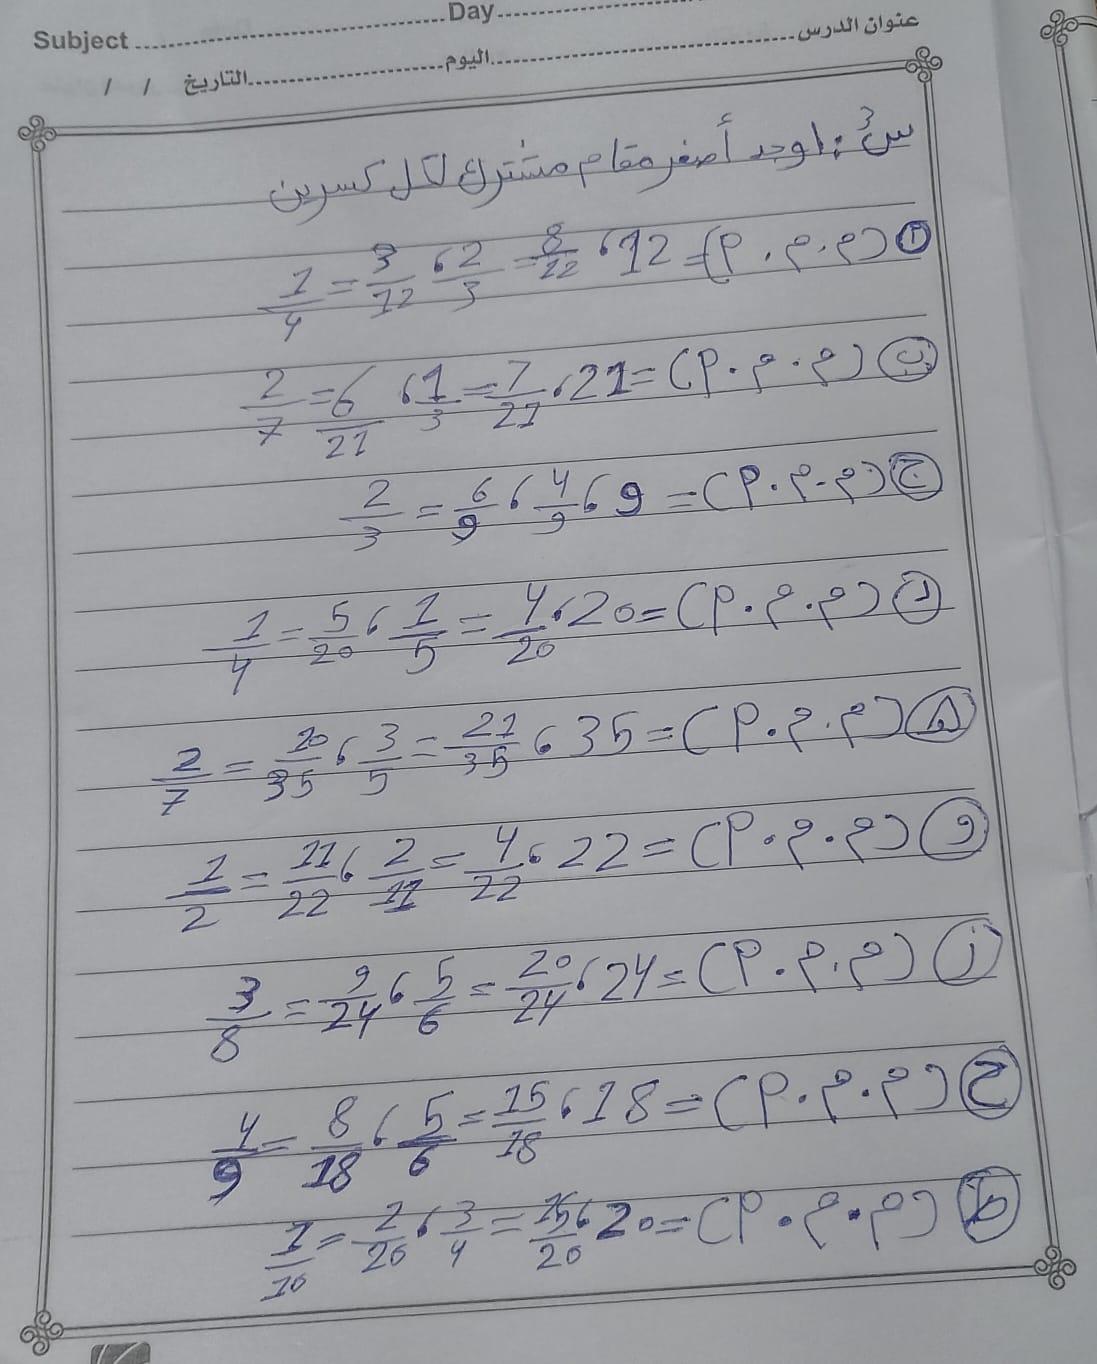 Subject ........ Day ........
عنوان الدرس ........ اليوم ........ التاريخ / /
س3: اوجد أصغر مقام مشترك لكل كسرين
أ (م.م.م) = 12 ، 2/3 = 8/12 ، 1/4 = 3/12
ب (م.م.م) = 21 ، 1/3 = 7/21 ، 2/7 = 6/21
ج (م.م.م) = 9 ، 4/9 ، 2/3 = 6/9
د (م.م.م) = 20 ، 1/5 = 4/20 ، 1/4 = 5/20
ه (م.م.م) = 35 ، 3/5 = 21/35 ، 2/7 = 20/35
و (م.م.م) = 22 ، 2/11 = 4/22 ، 1/2 = 11/22
ز (م.م.م) = 24 ، 5/6 = 20/24 ، 3/8 = 9/24
ح (م.م.م) = 18 ، 5/6 = 15/18 ، 4/9 = 8/18
ط (م.م.م) = 20 ، 3/4 = 15/20 ، 1/10 = 2/20